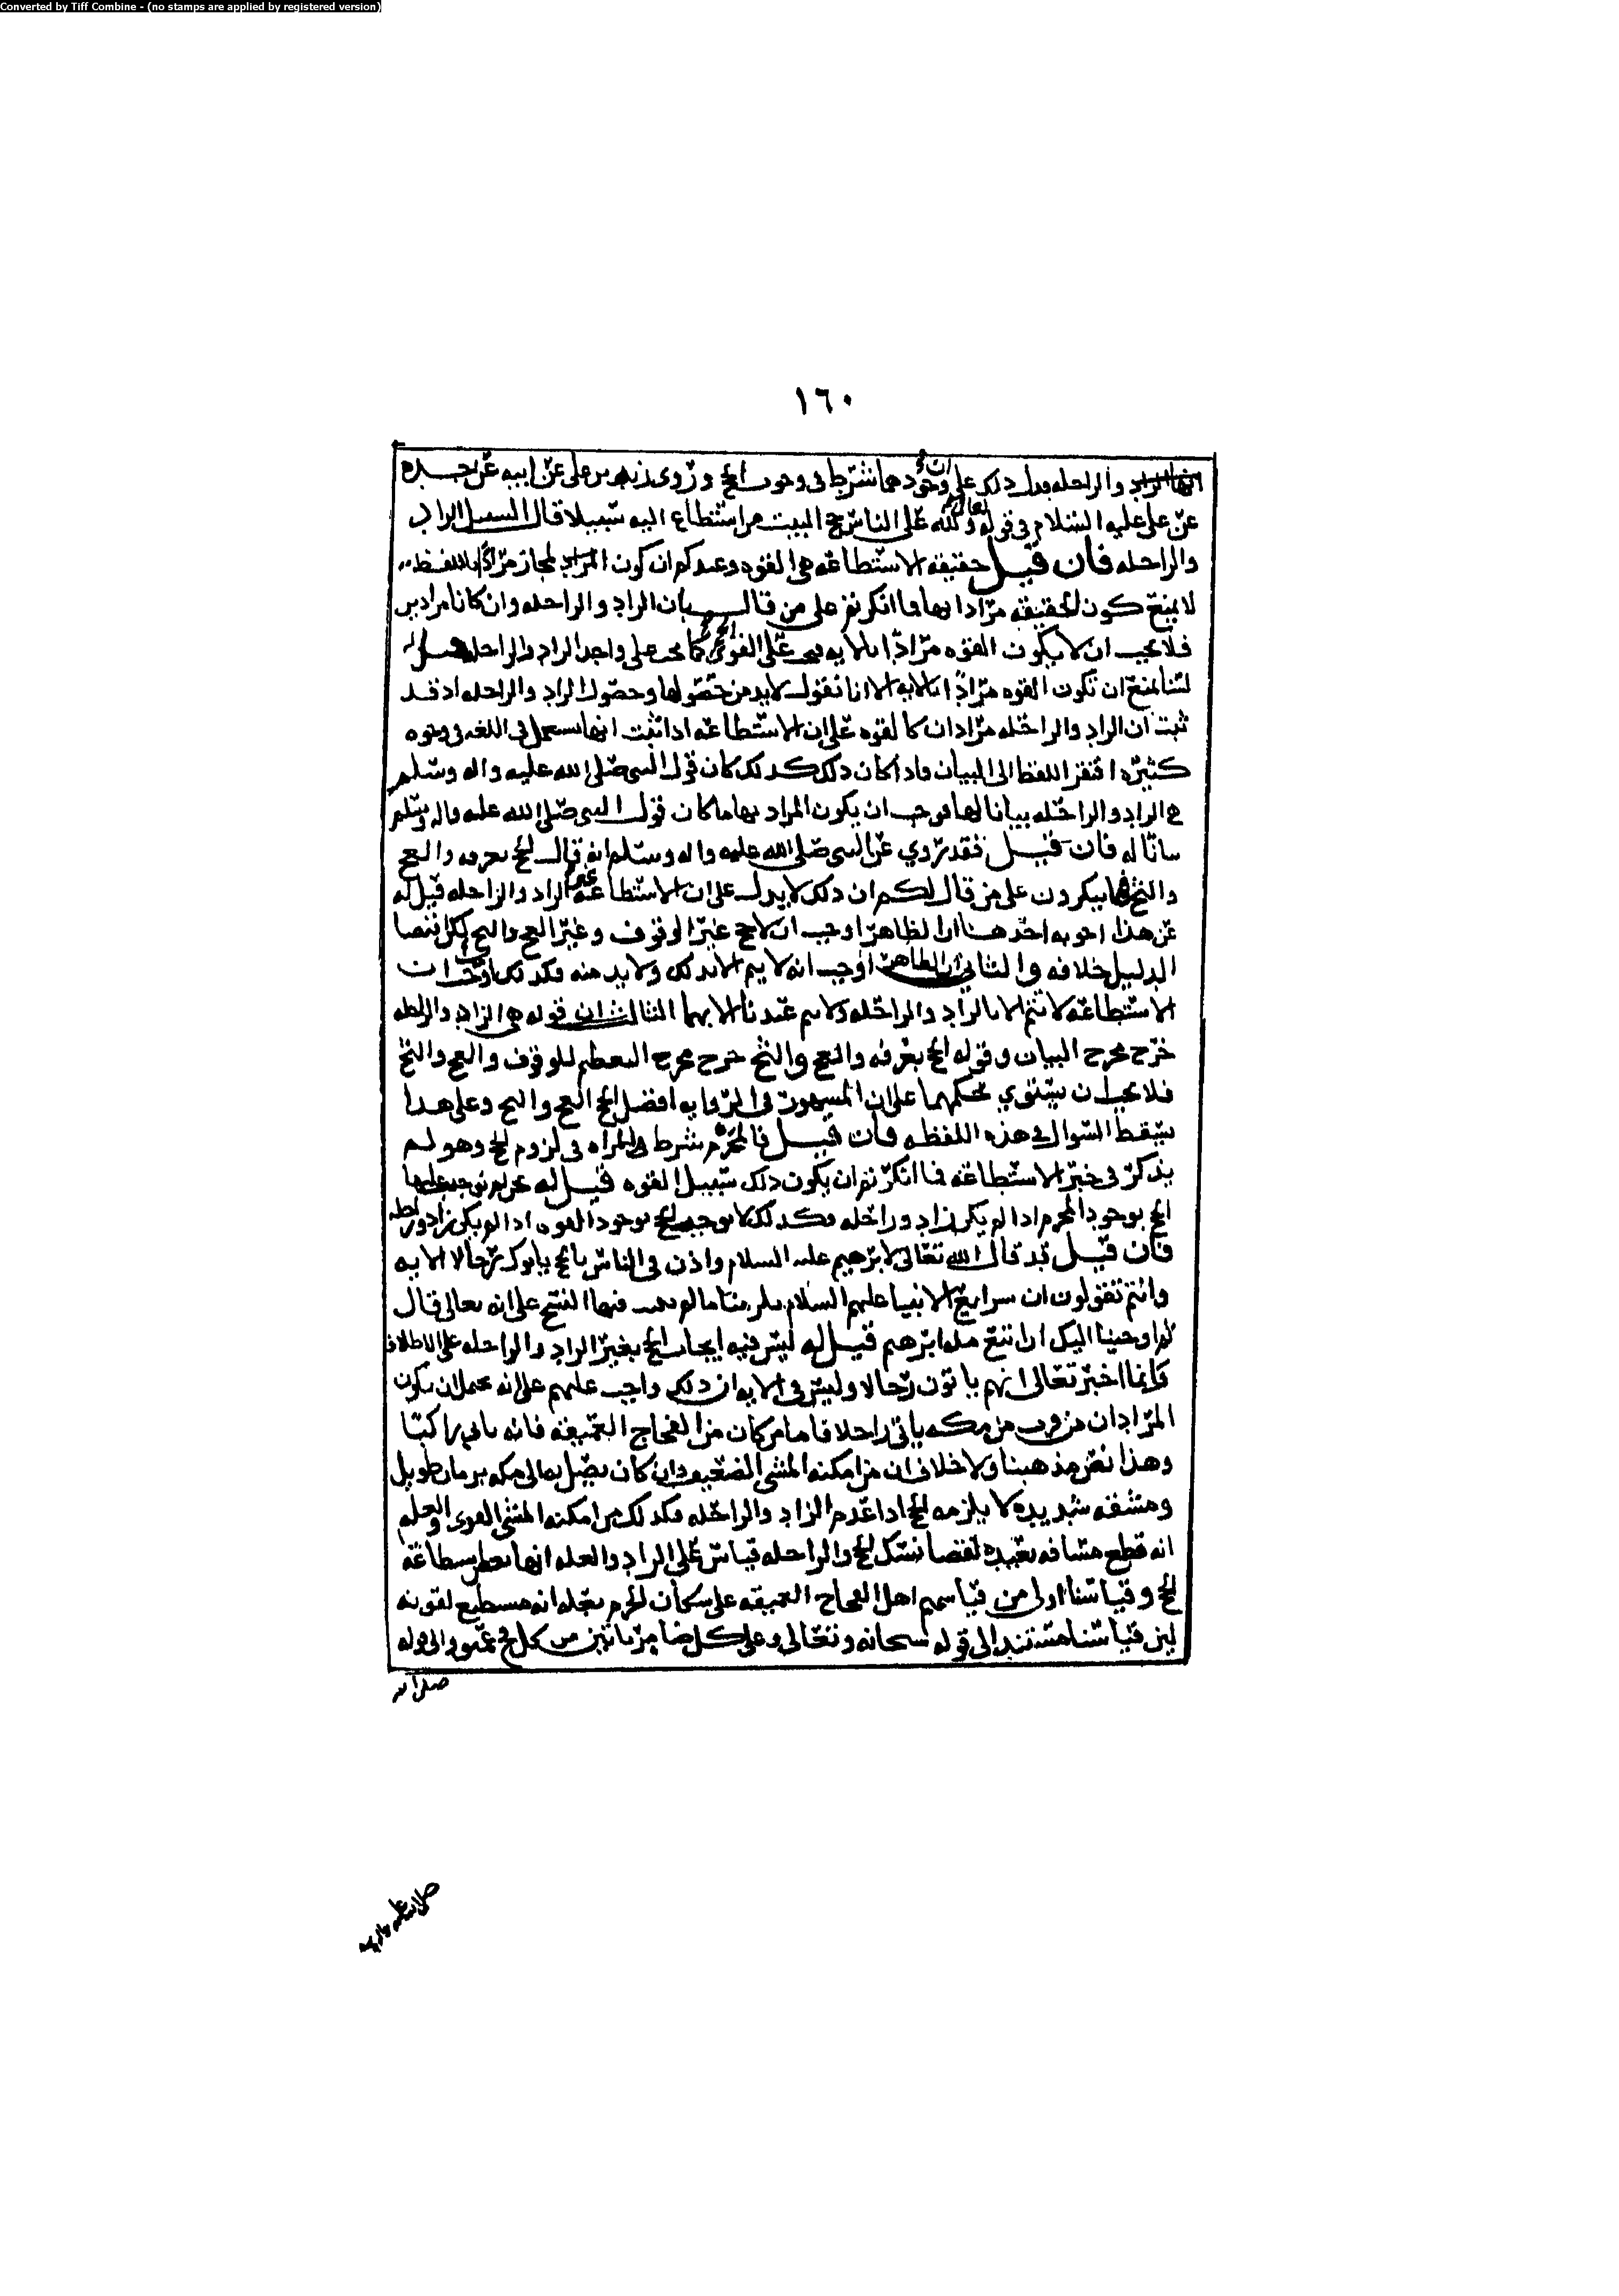 Converted by Tiff Combine - (no stamps are applied by registered version)
١٦٠
انها الزاد والراحله فدل ذلك على ان وجودهما شرط فى وجوب الحج وروى زيد بن على عن ابيه عن جده
عن على عليه السلام فى قوله تعالى ولله على الناس حج البيت من استطاع اليه سبيلا قال السبيل الزاد
والراحله فان قيل حقيقه الاستطاعه هى القوه وعندكم ان كون المجاز مرادًا باللفظ
لا يمنع كون الحقيقه مرادا بها فما انكرتم على من قال بان الزاد والراحله وان كانا مرادين
فلا يجب ان لا يكون القوه مرادًا بالايه فيجب على القوى الحج كما يجب على واجد الزاد والراحله قيل له
لسنا نمنع ان تكون القوه مرادًا بالايه الا انا نقول لا بد من حصولها وحصول الزاد والراحله اذ قد
ثبت ان الزاد والراحله مرادان كالقوه على ان الاستطاعه اذا ثبت انها تستعمل فى اللغه فى وجوه
كثيره افتقر اللفظ الى البيان واذا كان ذلك كذلك كان قول النبى صلى الله عليه واله وسلم
هى الزاد والراحله بيانا لها فوجب ان يكون المراد بها ما كان قول النبى صلى الله عليه واله وسلم
بيانا له فان قيل فقد روي عن النبى صلى الله عليه واله وسلم انه قال الحج بعرفه والعج
والثج فما ينكرون على من قال لكم ان ذلك لا يدل على ان الاستطاعه غير الزاد والراحله قيل له
عن هذا اجوبه احدها ان الظاهر اوجب ان لا حج غير الوقوف وغير العج والثج لكن خصصنا
الدليل خلافه والثانى ان الظاهر اوجب انه لا يتم الا بذلك ولا بد منه فكذلك اوجب ان
الاستطاعه لا تتم الا بالزاد والراحله ولا تتم عندنا الا بهما الثالث ان قوله هى الزاد والراحله
خرج مخرج البيان وقوله الحج بعرفه والعج والثج خرج مخرج التعظيم للوقوف والعج والثج
فلا يجب ان يستوي حكمهما على ان المشهور فى الروايه افضل الحج العج والثج وعلى هذا
يسقط السوال فى هذه اللفظه فان قيل فالمحرم شرط فى المراه فى لزوم الحج وهو لم
يذكر فى خبر الاستطاعه فما انكرتم ان يكون ذلك سبيل القوه قيل له نحن لم نوجب عليها
الحج بوجود المحرم اذا لم يكن زاد وراحله فكذلك لا نوجب الحج بوجود القوه اذا لم يكن زاد وراحله
فان قيل قد قال الله تعالى لابرهيم عليه السلام واذن فى الناس بالحج ياتوك رجالا الايه
وانتم تقولون ان شرايع الانبيا عليهم السلام تلزمنا ما لم يثبت فيها النسخ على انه تعالى قال
ثم اوحينا اليك ان اتبع مله ابرهيم قيل له ليس فيه ايجاب الحج بغير الزاد والراحله على الاطلاق
وانما اخبر تعالى انهم ياتون رجالا وليس فى الايه ان ذلك واجب عليهم على انه يحتمل ان يكون
المراد ان من قرب من مكه ياتى راجلا فاما من كان من الفجاج العميقه فانه ياتى راكبًا
وهذا نص مذهبنا ولا خلاف ان من امكنه المشى الضعيف وان كان يصل به الى مكه بزمان طويل
ومشقه شديده لا يلزمه الحج اذا عدم الزاد والراحله فكذلك من امكنه المشى القوى والعله
انه قطع مسافه بعيده لقضا نسك الحج والراحله قياس على الزاد والعله انها استطاعه
الحج وقياسنا اولى من قياسهم اهل الفجاج العميقه على سكان الحرم بعله انه مستطيع لقوته
لان قياسنا مستند الى قوله سبحانه وتعالى وعلى كل ضامر ياتين من كل فج عميق والى قوله
صلى الله